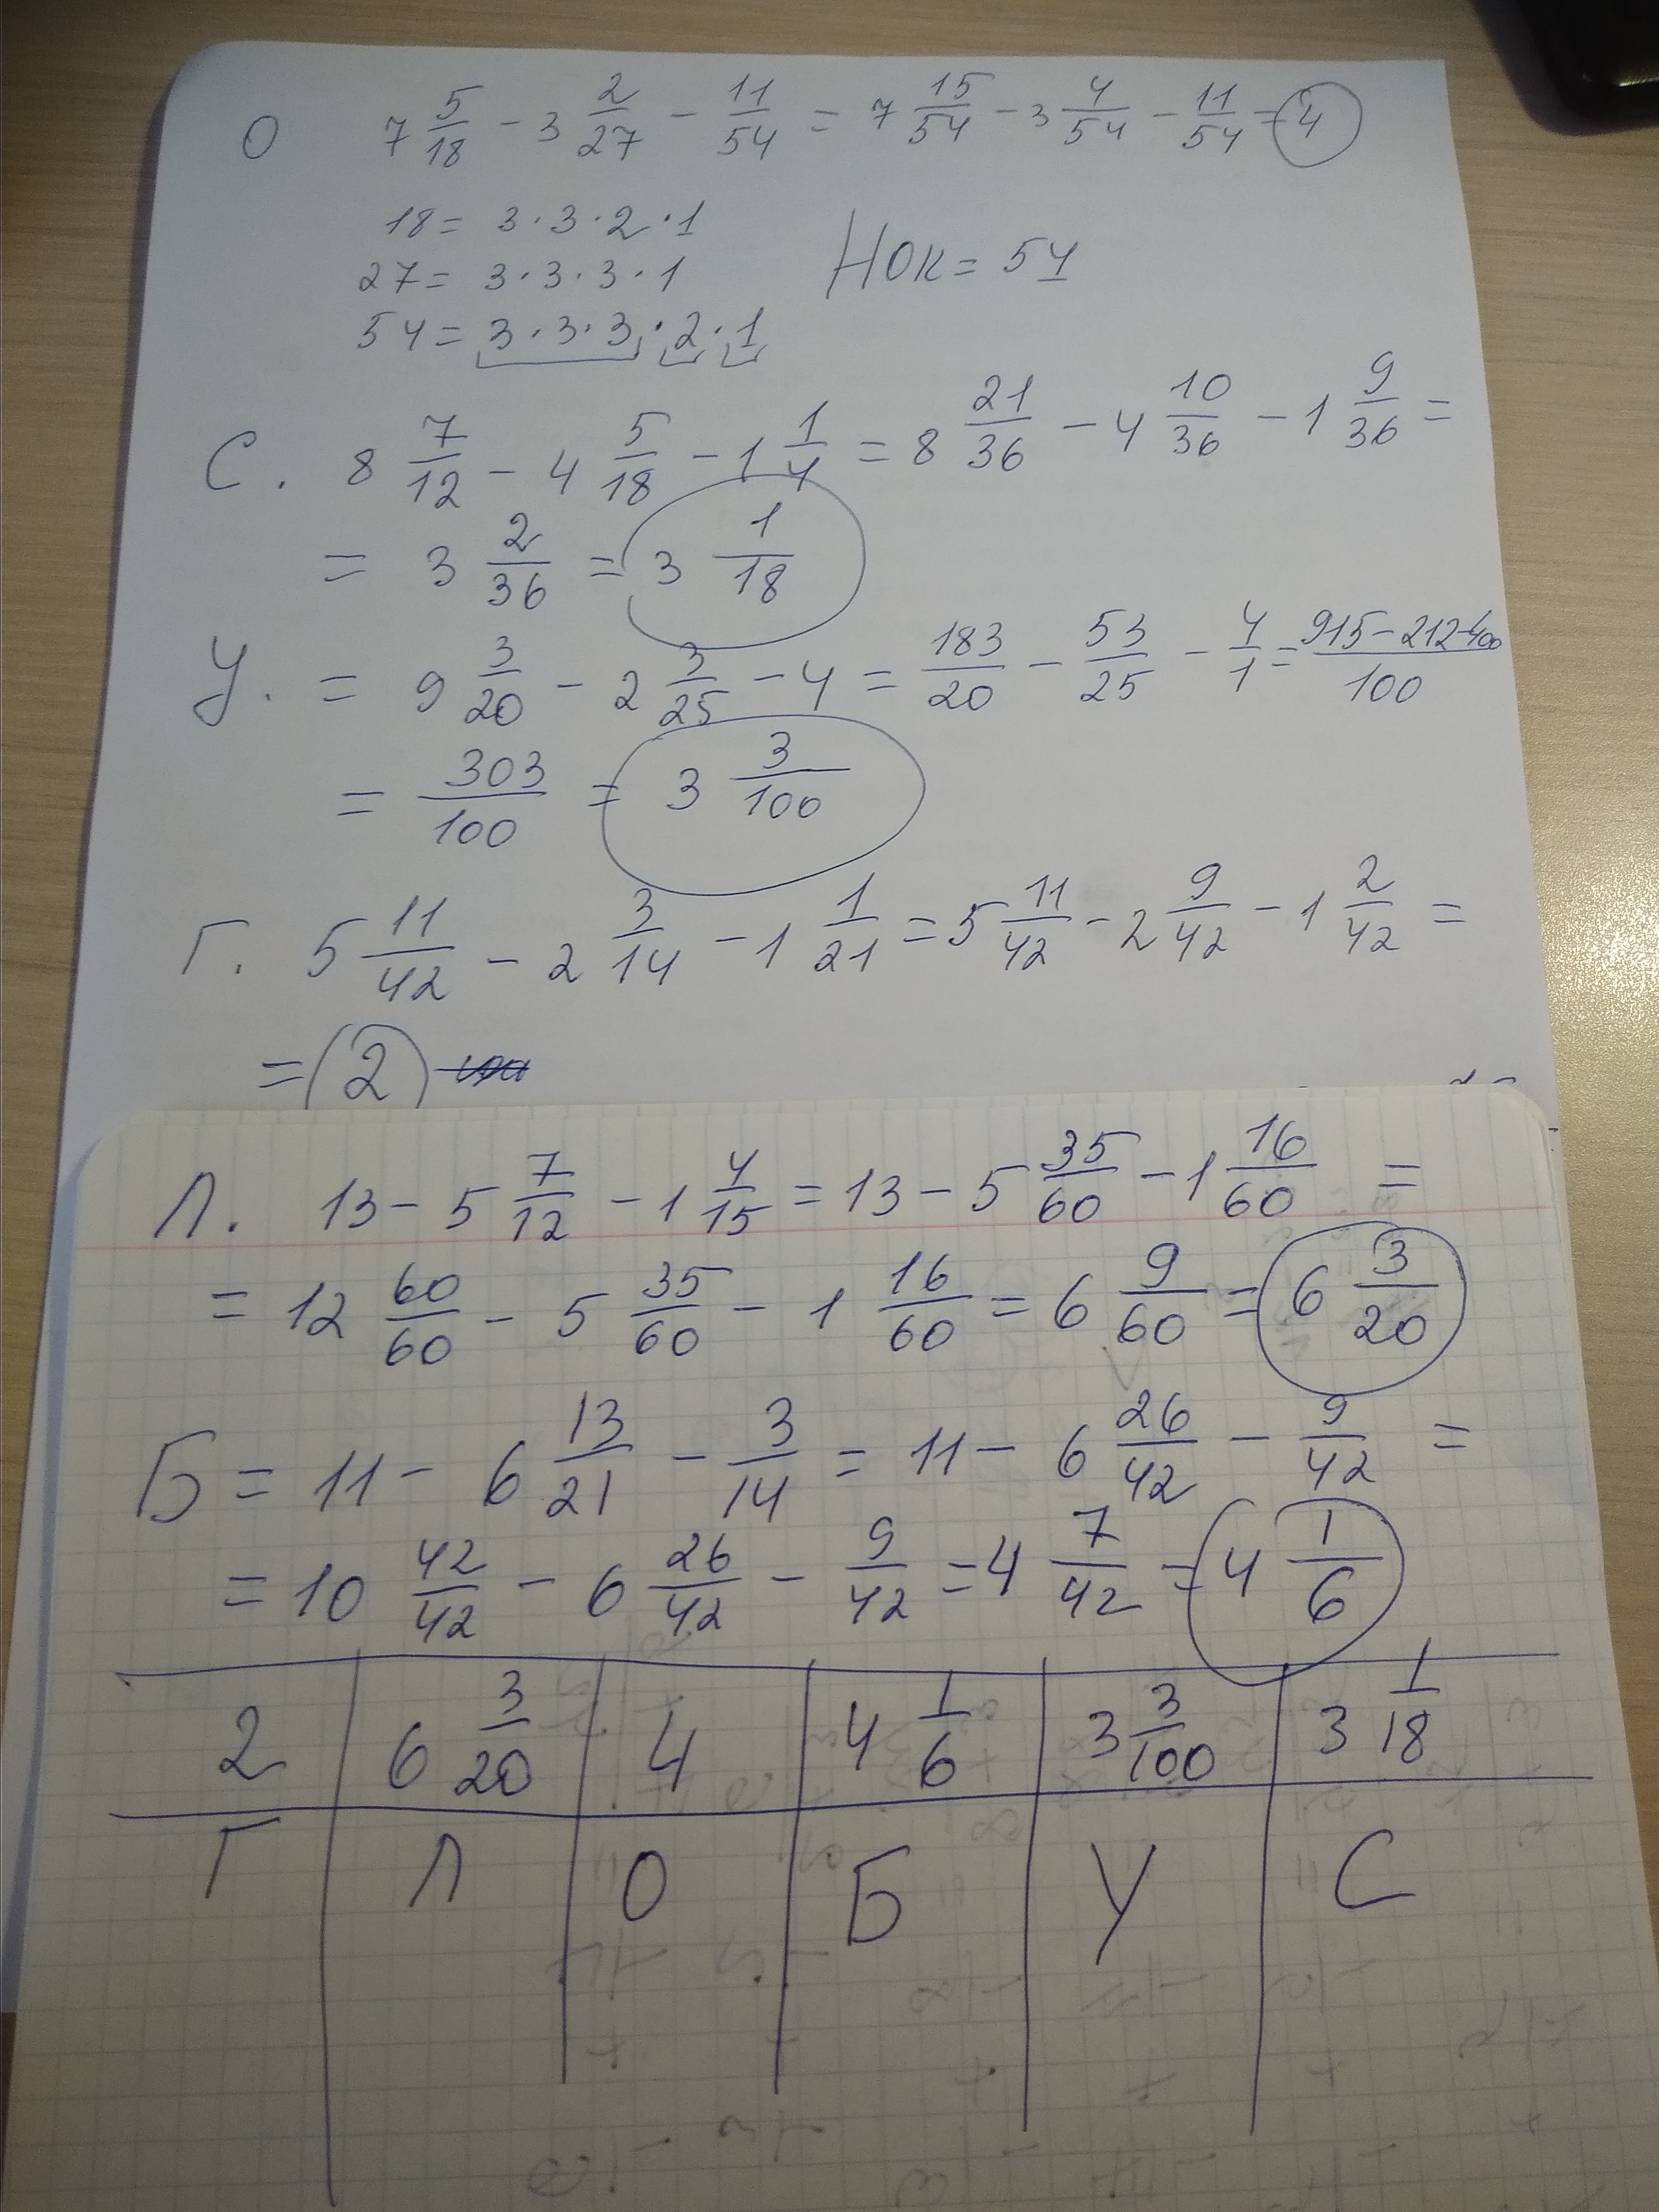 О 7 5/18 - 3 2/27 - 11/54 = 7 15/54 - 3 4/54 - 11/54 = 4
18 = 3 · 3 · 2 · 1
27 = 3 · 3 · 3 · 1 НОК = 54
54 = 3 · 3 · 3 · 2 · 1
С. 8 7/12 - 4 5/18 - 1 1/4 = 8 21/36 - 4 10/36 - 1 9/36 =
= 3 2/36 = 3 1/18
У. = 9 3/20 - 2 3/25 - 4 = 183/20 - 53/25 - 4/1 = 915-212-400/100
= 303/100 = 3 3/100
Г. 5 11/42 - 2 3/14 - 1 1/21 = 5 11/42 - 2 9/42 - 1 2/42 =
= 2
Л. 13 - 5 7/12 - 1 4/15 = 13 - 5 35/60 - 1 16/60 =
= 12 60/60 - 5 35/60 - 1 16/60 = 6 9/60 = 6 3/20
Б = 11 - 6 13/21 - 3/14 = 11 - 6 26/42 - 9/42 =
= 10 42/42 - 6 26/42 - 9/42 = 4 7/42 = 4 1/6
2 6 3/20 4 4 1/6 3 3/100 3 1/18
Г Л О Б У С